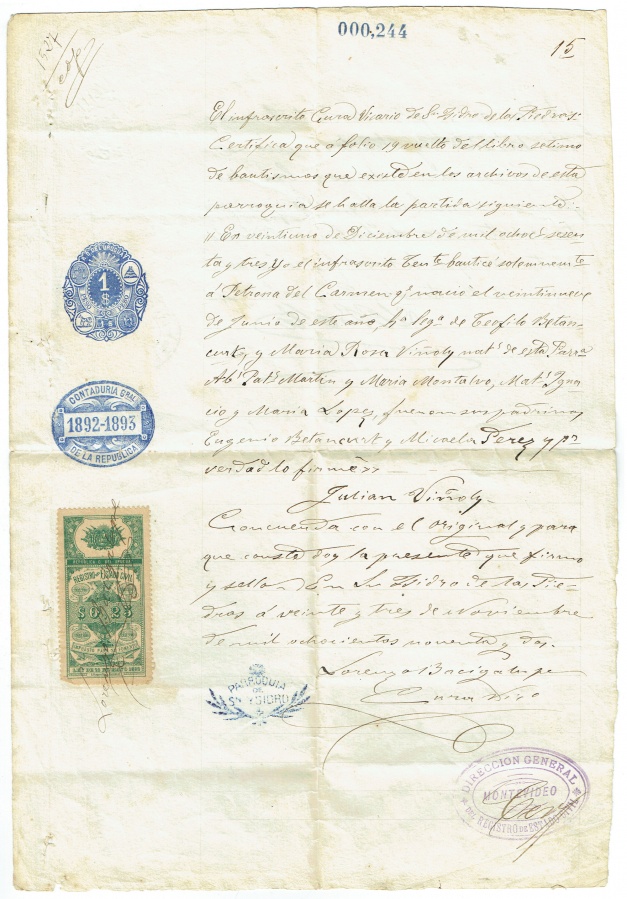 000,244
15
1527
El infrascrito Cura Vicario de Sn Isidro de las Piedras
Certifica que á folio 19 vuelto del libro setimo
de bautismos que existe en los archivos de esta
parroquia se halla la partida siguiente:
"En veintiuno de Diciembre de mil ochocs sesen-
ta y tres, Yo el infrascrito Tente bauticé solemnemte
á Petrona del Carmen q' nació el veintinueve
de Junio de este año, ha lega de Teofilo Betan-
curt, y Maria Rosa Viñoly nats de esta Parra
Abs Pats Martin y Maria Montalvo, Mats Igna
cio y Maria Lopez, fueron sus padrinos
Eugenio Betancurt y Micaela Perez y pr
verdad lo firmé"
Julian Viñoly
Concuerda con el original y para
que conste doy la presente que firmo
y sello En Sn Isidro de las Pie-
dras á veinte y tres de Noviembre
de mil ochocientos noventa y dos.
Lorenzo
Cura Vico
1
$
CONTADURIA GRAL
1892-1893
DE LA REPUBLICA
REGISTRO DE ESTADO CIVIL
$0.25
PARROQUIA
DE
SN ISIDRO
DIRECCION GENERAL
MONTEVIDEO
DEL REGISTRO DE ESTADO CIVIL